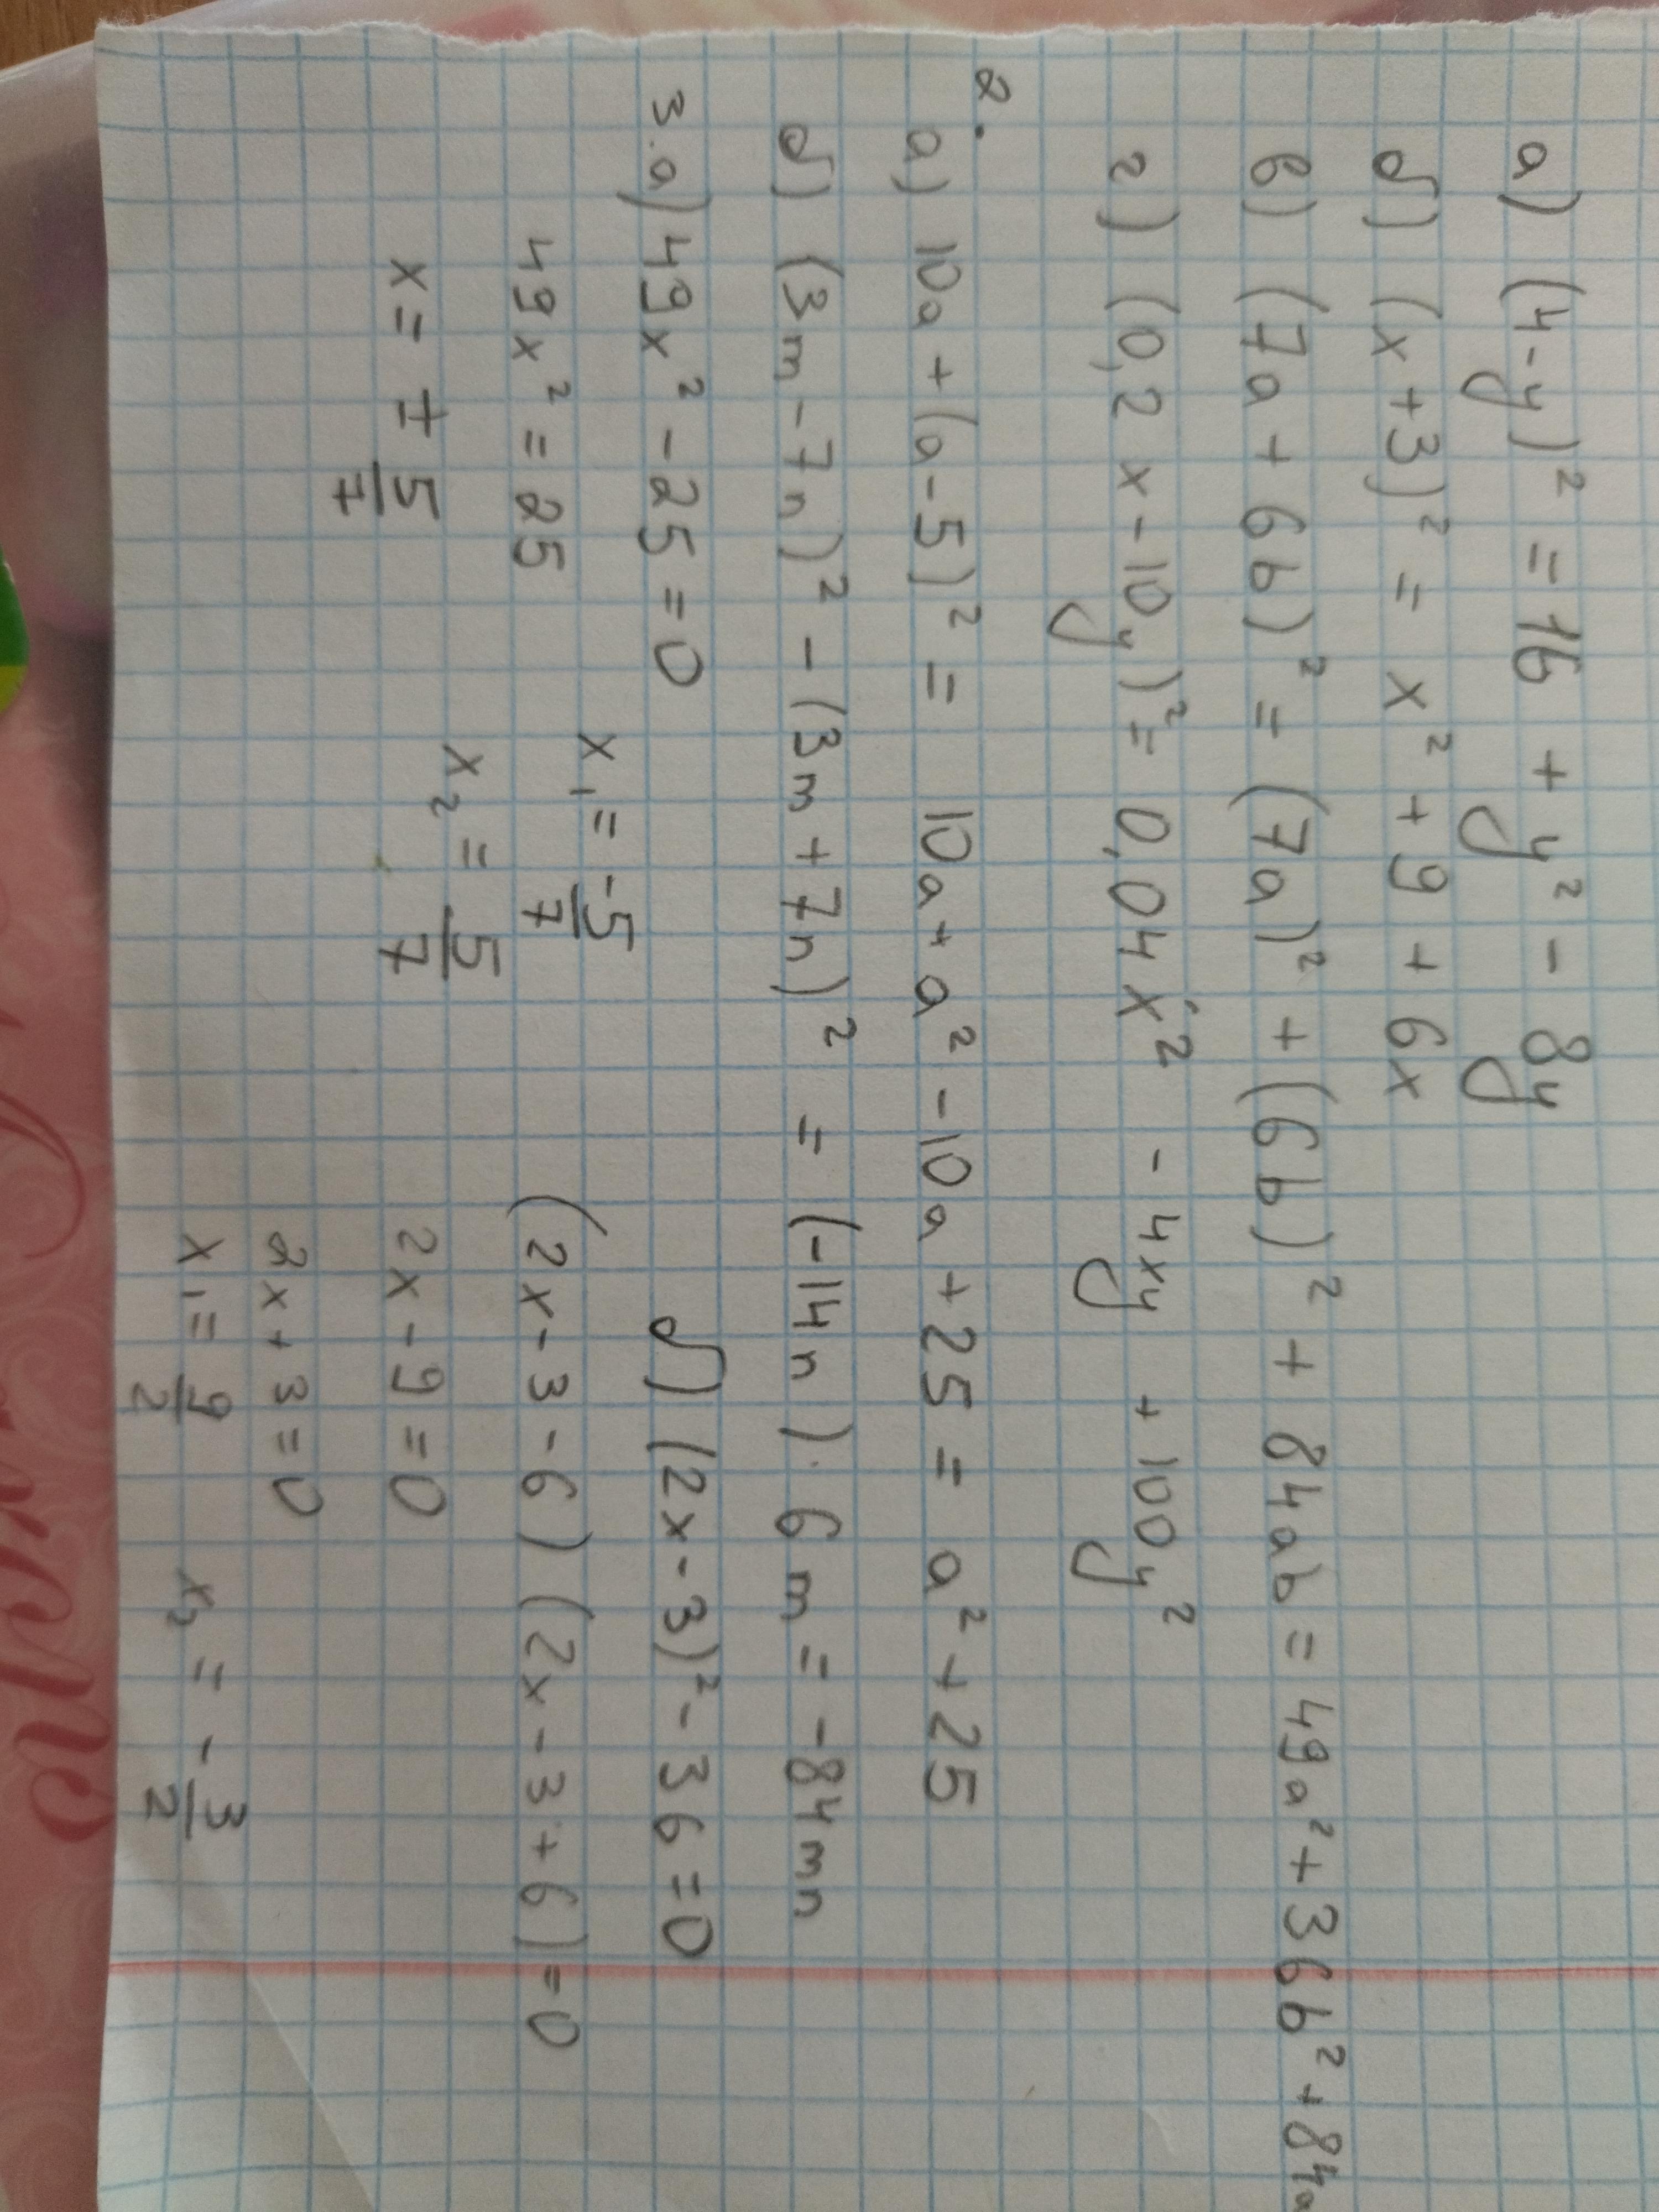 а) (4-y)² = 16 + y² - 8y
б) (x+3)² = x² + 9 + 6x
в) (7a + 6b)² = (7a)² + (6b)² + 84ab = 49a² + 36b² + 84a
г) (0,2x - 10y)² = 0,04x² - 4xy + 100y²
2.
а) 10a + (a-5)² = 10a + a² - 10a + 25 = a² + 25
б) (3m - 7n)² - (3m + 7n)² = (-14n) · 6m = -84mn
3. а) 49x² - 25 = 0
49x² = 25
x = ∓ 5/7
x₁ = -5/7
x₂ = 5/7
б) (2x - 3)² - 36 = 0
(2x - 3 - 6) (2x - 3 + 6) = 0
2x - 9 = 0
2x + 3 = 0
x₁ = 9/2 x₂ = - 3/2